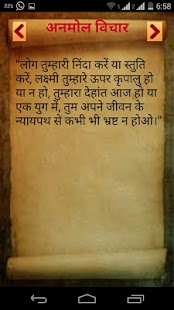 6:58
अनमोल विचार
“लोग तुम्हारी निंदा करें या स्तुति
करें, लक्ष्मी तुम्हारे ऊपर कृपालु हो
या न हो, तुम्हारा देहांत आज हो या
एक युग में, तुम अपने जीवन के
न्यायपथ से कभी भी भ्रष्ट न होओ।”